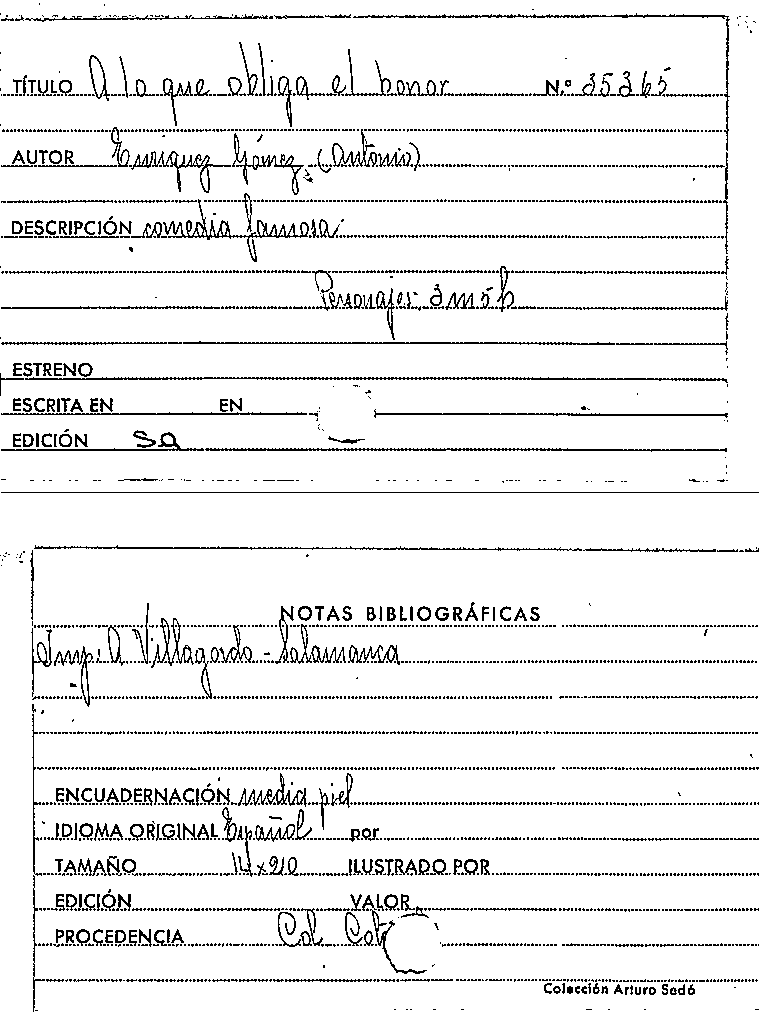 TÍTULO A lo que obliga el honor N.º 35365
AUTOR Enriquez Gómez, (Antonio)
DESCRIPCIÓN comedia famosa.
Personajes: 3 m 5 h
ESTRENO
ESCRITA EN EN
EDICIÓN sa
NOTAS BIBLIOGRÁFICAS
Imp: A Villagordo - Salamanca
ENCUADERNACIÓN media piel
IDIOMA ORIGINAL Español por
TAMAÑO ILUSTRADO POR
EDICIÓN VALOR
PROCEDENCIA Col.
Colección Arturo Sedó